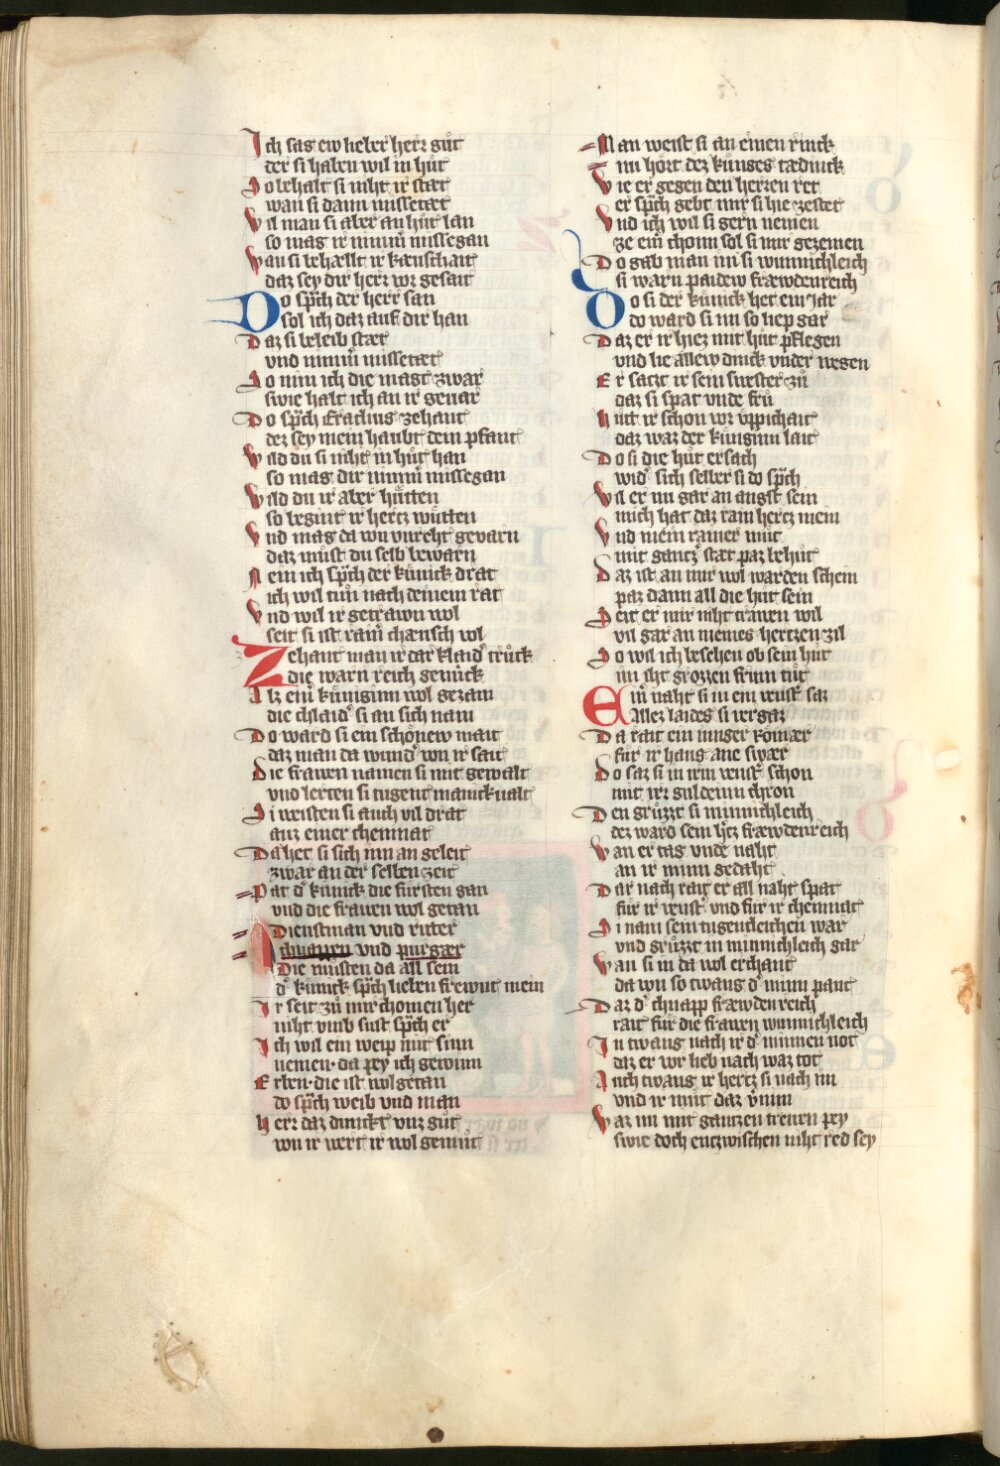 Ich sag ew lieber herr guͦt
der si haben wil in huͦt
So behalt si niht ir stæt
wan si dann missetæt
Wil man si aber an huͦt lan
so mag ir nimm̄ missegan
Wan si behællt ir kæuschait
daz sey dir herr vor gesait
Do sp̄ch der herr san
sol ich daz auf dir han
Daz si beleib stæt
vnd nimm̄ missetæt
So nim ich die magt zwar
swie halt ich an ir geuar
Do sp̄ch Eraclius zehant
dez sey mein haubt dein pfant
Wild du si niht in huͦt han
so mag dir nimm̄ missegan
Wild du ir aber huͤtten
so begint ir hertz wuͤtten
Vnd mag da von vnreht gevarn
daz muͦst du selb bewarn
Nein ich sp̄ch der kuͤnick drat
ich wil tuͦn nach deinem rat
Vnd wil ir getrawn wol
seit si ist rain̄ chæusch vol
Zehant man ir dar klaid̄ truͦck
die warn reich genuͦck
Alz ein̄ kuͤniginn wol gezam
die chlaid̄ si an sich nam
Do ward si ein schoͤnew mait
daz man da wund̄ von ir sait
Die frawen namen si mit gewalt
vnd lerten si tugent manickualt
Si weisten si auch vil drat
auz einer chemnat
Da het si sich inn an geleit
zwar an der selben zeit
Pat d̄ kuͤnick die fuͤrsten gan
vnd die frawen wol getan
Dienstman vnd ritter
vnd purgær
Die muͤsten da all sein
d̄ kuͤnick sp̄ch lieben frewnt mein
Ir seit zuͦ mir chomen her
niht vmb sust sp̄ch er
Ich wil ein weip mit sinn
nemen · da pey ich gewinn
Erben · die ist wolgetan
do sp̄ch weib vnd man
Herr daz dunckt vnz guͦt
won ir wert ir wol gemuͦt
Man weist si an einen rinck
nu hort dez kuͤnges tædinck
Wie er gegen den herren ret
er sp̄ch gebt mir si hie zestet
Vnd ich wil si gern nemen
ze ein̄ chonn sol si mir gezemen
Do gab man im si wunnichleich
si warn paidew fræwdenreich
Do si der kuͤnick het ein iar
do ward si im so liep gar
Daz er ir hiez mit huͦt pflegen
vnd lie allew dinck vnder wegen
Er satzt ir sein swester zuͦ
daz si spat vnde fruͦ
Huͤtt ir schon vor vppichait
daz waz der kuͤniginn lait
Do si die huͦt ersach
wid̄ sich selber si do sp̄ch
Wil er nu gar an angst sein
mich hat daz rain hertz mein
Vnd mein rainer muͦt
mit gantz̄ stæt paz behuͦt
Daz ist an mir wol warden schein
paz dann all die huͦt sein
Seit er mir niht trawen wil
vil gar an meines hertzen zil
So wil ich besehen ob sein huͦt
im iht grozzen frum tuͦt
Ein̄ naht si in ein venst̄ saz
Allez laides si vergaz
Da rait ein iunger Romær
fuͤr ir haus ane swær
Do saz si in irm venst̄ schon
mit irr guldeinn chron
Den gruͤzzt si minnichleich
dez ward sein h̄tz fræwdenreich
Wan er tag vnde naht
an ir minn gedaht
Dar nach rait er all naht spat
fuͤr ir venst̄ vnd fuͤr ir chemnat
Si nam sein tugentleichen war
vnd gruͤzzt in minnichleich gar
Wan si in da wol erchant
da von so twang d̄ minn pant
Daz d̄ chnapp fræwdenreich
rait fuͤr die frawen wunnichleich
In twang nach ir d̄ minnen not
daz er vor lieb nach waz tot
Auch twang ir hertz si nach im
vnd ir muͦt daz v̄nim
Waz im mit gantzen trewen pey
swie doch entzwischen niht red sey